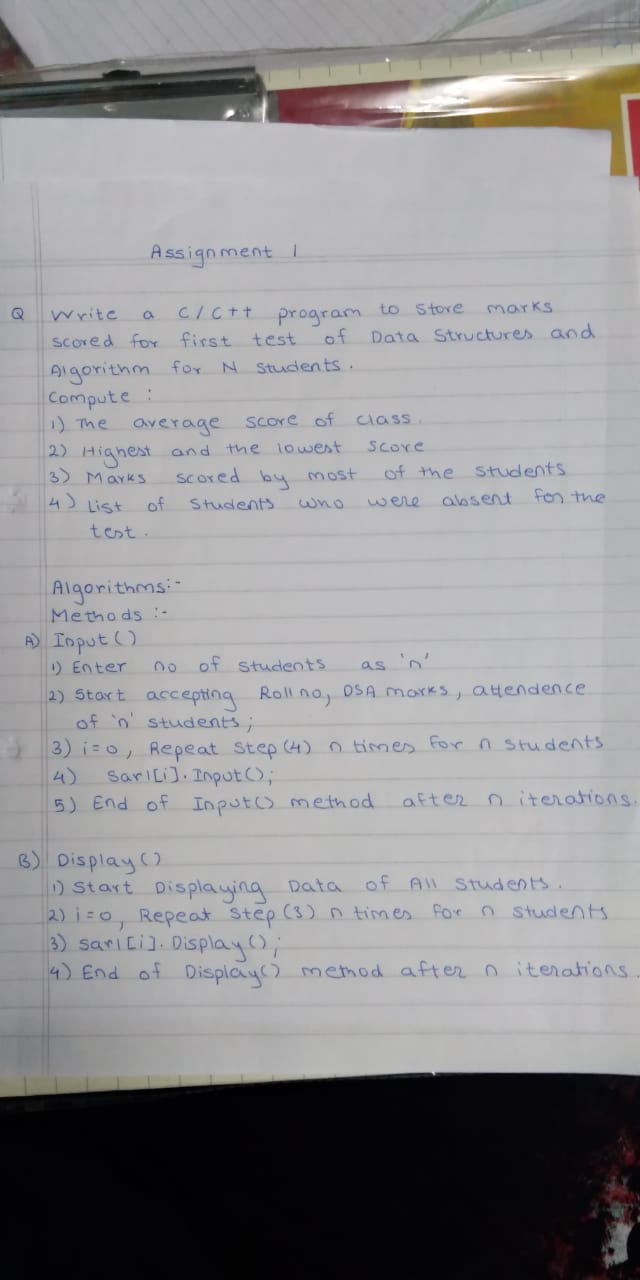 Assignment 1
Q Write a C/C++ program to store marks
scored for first test of Data Structures and
Algorithm for N students.
Compute :
1) The average score of class.
2) Highest and the lowest score
3) Marks scored by most of the students
4) List of students who were absent for the
test.
Algorithms:-
Methods :-
A) Input()
1) Enter no of students as 'n'
2) Start accepting Roll no, DSA marks, attendence
of 'n' students;
3) i=0, Repeat step (4) n times for n students
4) sar1[i].Input();
5) End of Input() method after n iterations.
B) Display()
1) Start Displaying Data of All students.
2) i=0, Repeat step (3) n times for n students
3) sar1[i].Display();
4) End of Display() method after n iterations.